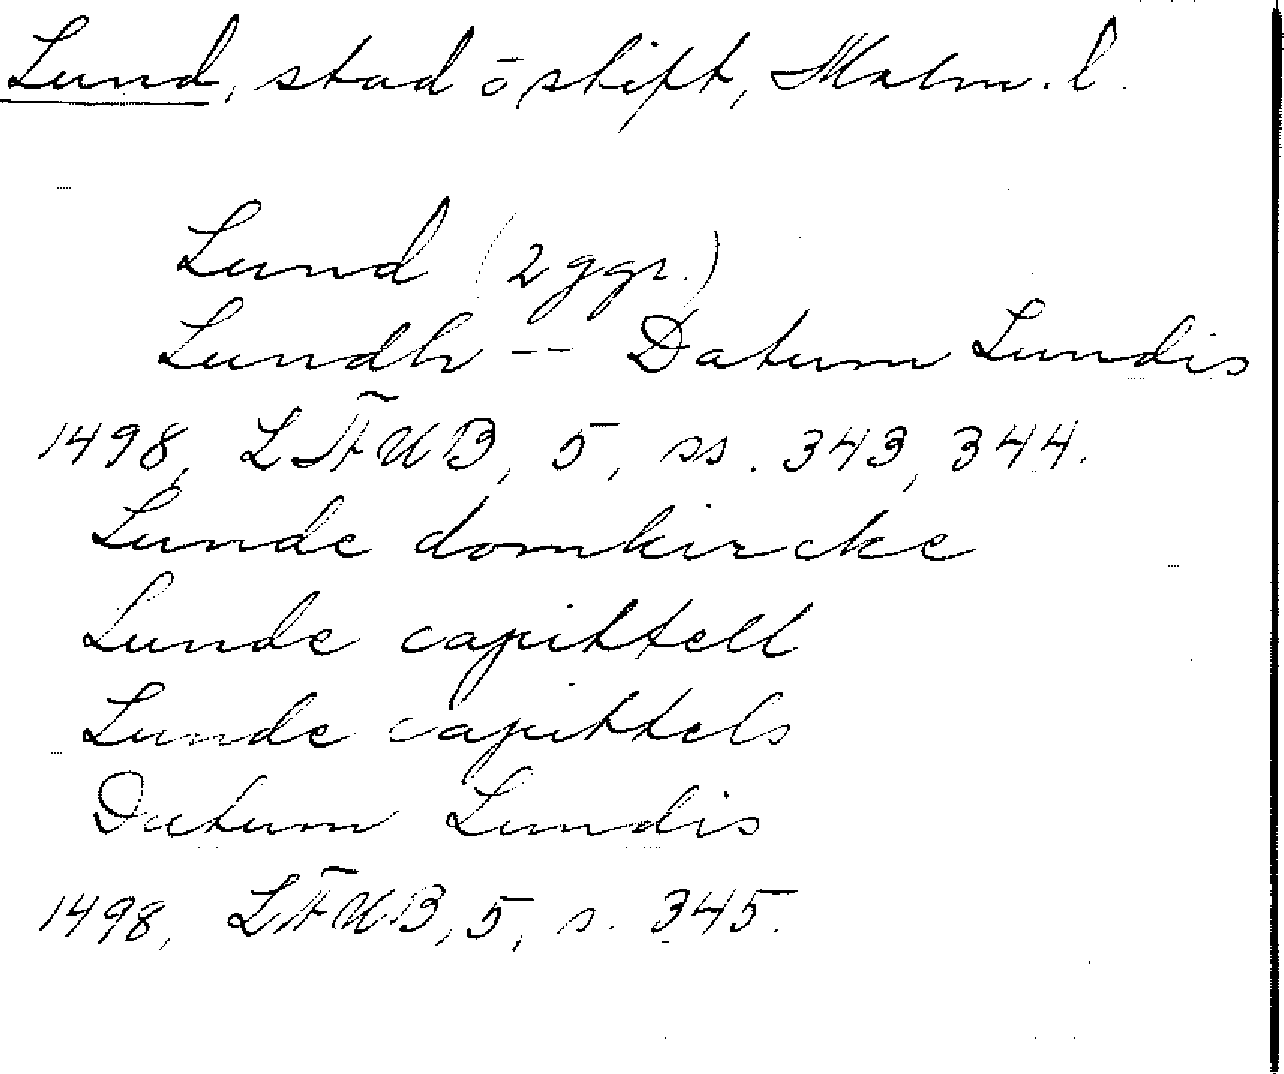 Lund, stad o stift, Malm. l.
Lund (2 ggr.)
Lundh -- Datum Lundis
1498, LÄUB, 5, ss. 343, 344.
Lunde domkircke
Lunde capittell
Lunde capittels
Datum Lundis
1498, LÄUB, 5, s. 345.